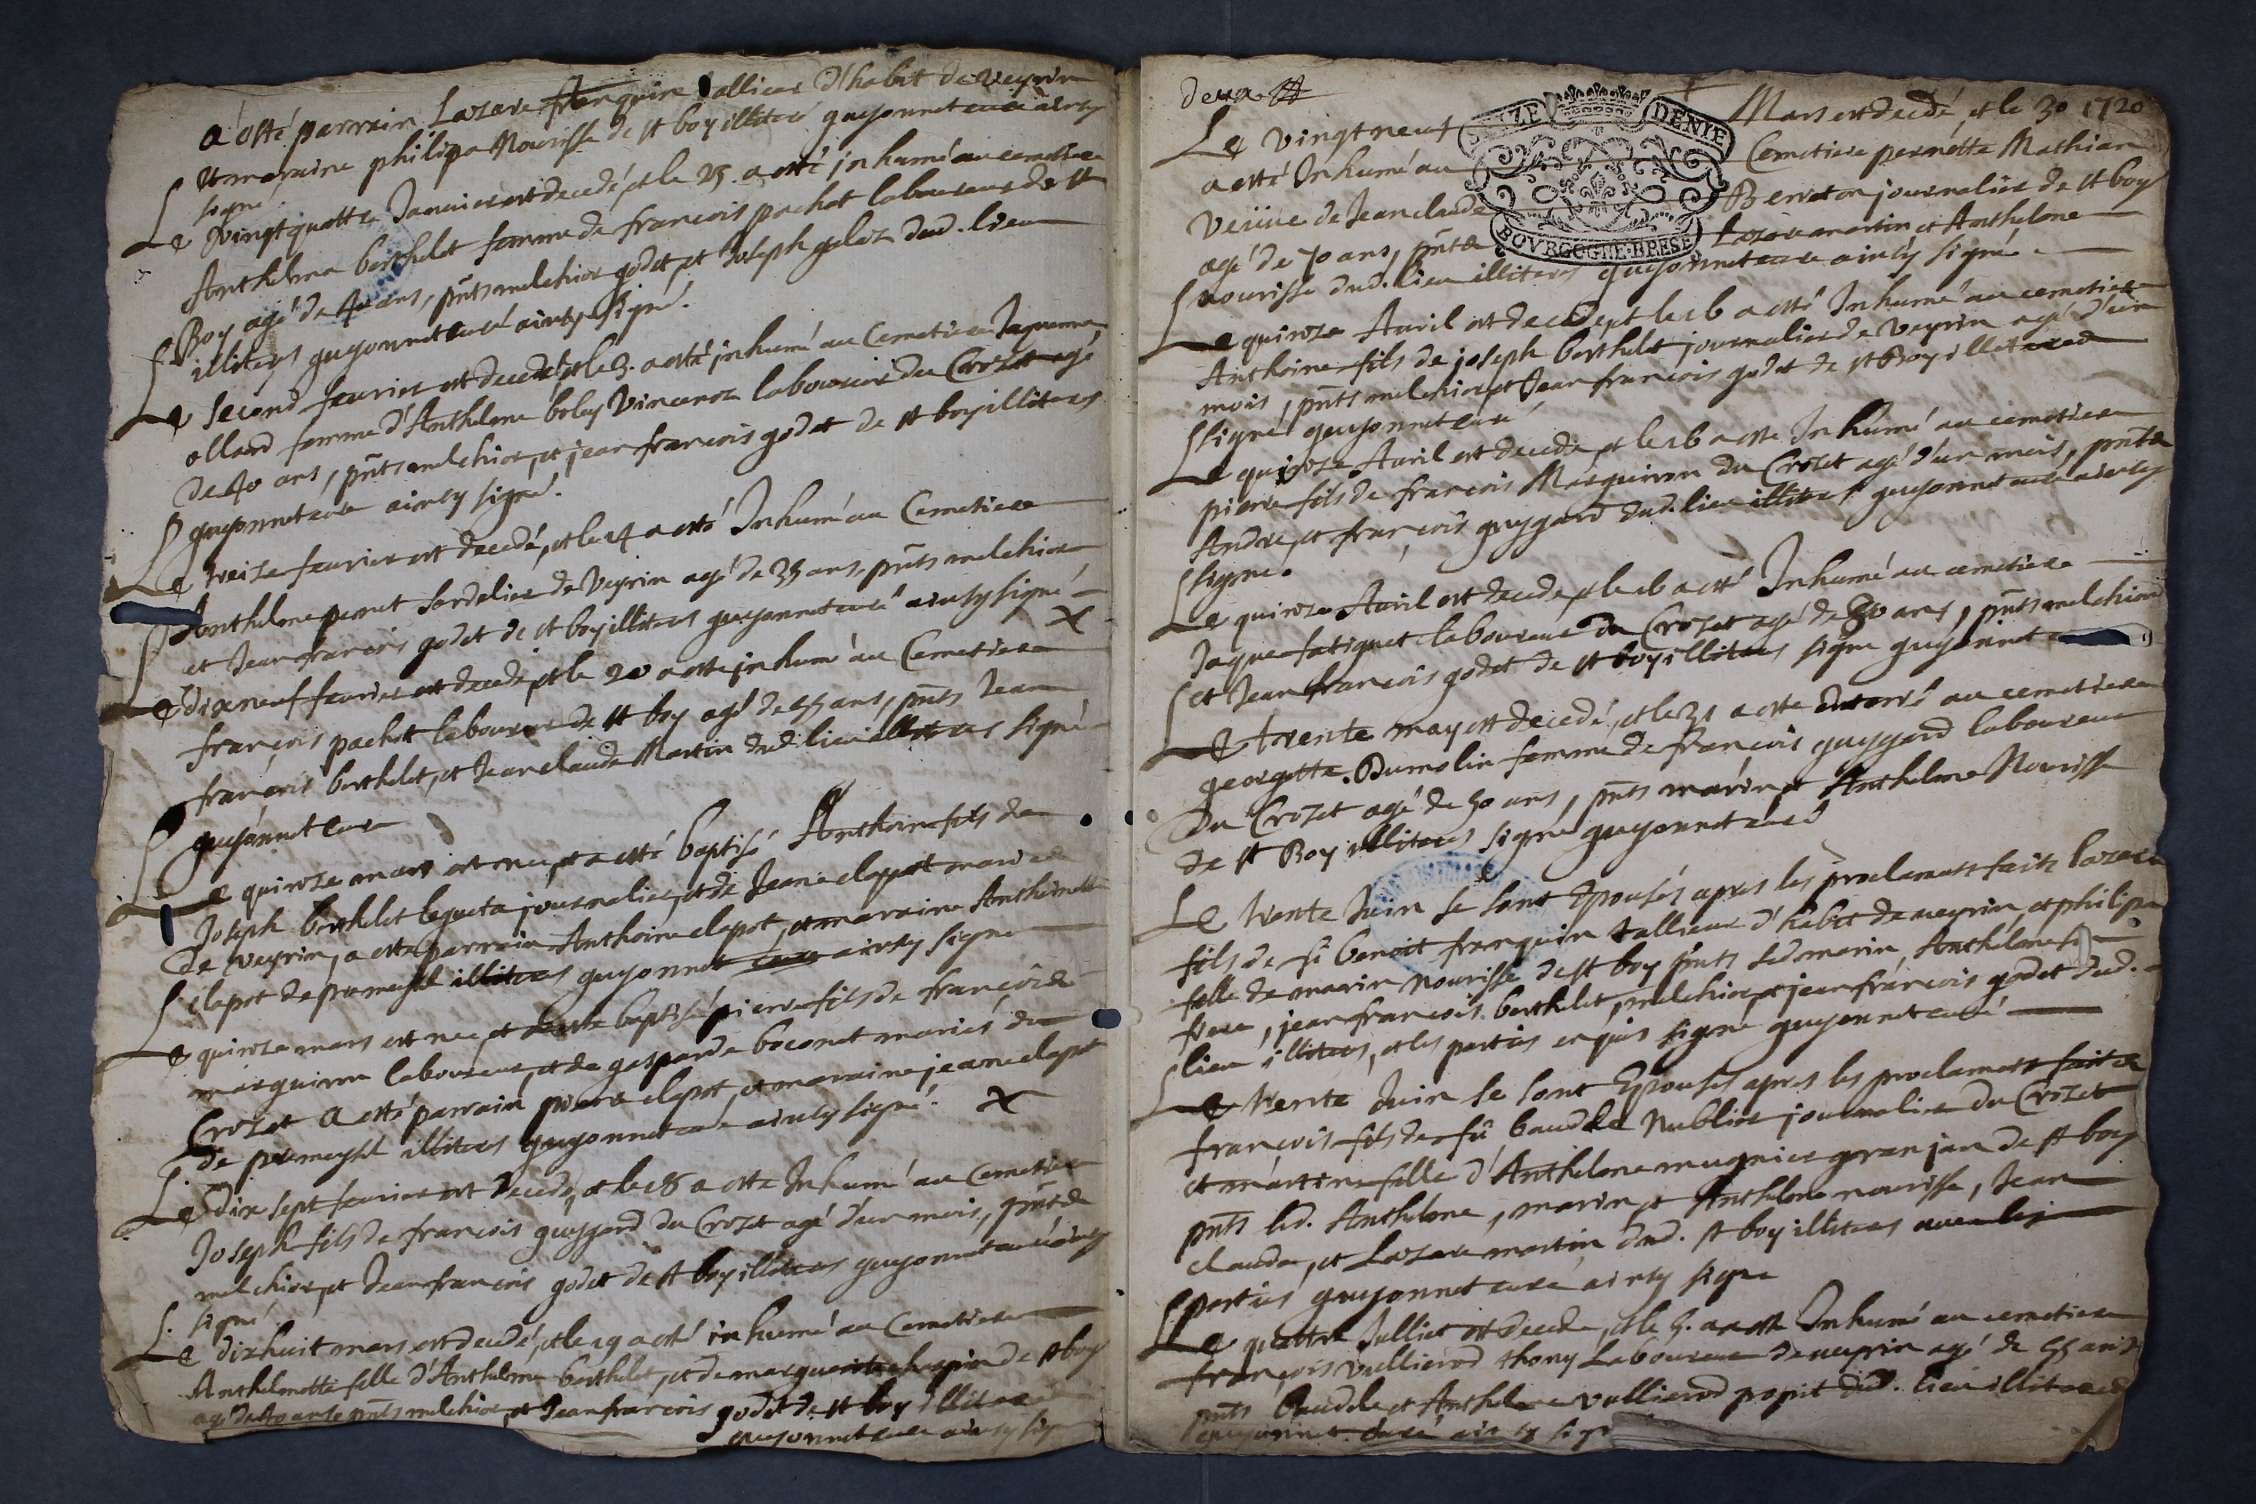 a ôtté parrain Lazare franquin tallieur d'habit de veyrin
et maraine philipa Nourisse de st boy illiteré guyonnet curé ainsy
signé
Le vingt quattre Januier est decedé, et le 25. a otté jnhumé au cemetiere
Anthelma berthelet femme de francois pochet laboureur de st
Boy agé de 40 ans, pnts melchior godet, et Joseph geloz dud. lieu
illiterés guyonnet curé ainsy signé.
Le second feurier est decedé et le 3. a otté jnhumé au Cemetiere Jaquema
ollard femme d'Anthelme boley Vincenoz laboureur du Crozet agé
de 40 ans, pnts melchior, et jean francois godet de st boy illiterés
guyonnet curé ainsy signé.
Le treize feurier est decedé, et le 14 a otté Inhumé au Cemetiere
Anthelme pernet Sordelier de Veyrin agé de 35 ans, pnts melchior
et Jean francois godet de st boy illiterés guyonnet curé ainsy signé
Le dixneuf feurier est decedé, et le 20 a otté jnhumé au Cemetiere
françois pochet laboureur de st boy agé de 55 ans, pnts Jean
françois berthelet, et Jean claude Martin dud. lieu illiterés signé
guyonnet curé
Le quinze mars est nez, et a otté baptisé Anthoine fils de
Joseph berthelet journalier, et de Jeane clepot mariés
de veyrin, a otté parrain Anthoine clepot, et marraine Anthelmette
clepot de premeyzel illiterés guyonnet curé ainsy signé
Le quinze mars est nez, et a otté baptisé pierre fils de françois
marguiron laboureur, et de gasparde boconet mariés du
Crozet a otté parrain pierre clepot, et maraine jeane clepot
de premeyzel illiterés guyonnet curé ainsy signé.
Le dix sept feurier est decedé, et le 18 a otté Inhumé au Cemetiere
Joseph fils de francois guygard du Crozet agé d'un mois, pnts
melchior, et Jean francois godet de st boy illiterés guyonnet curé ainsy
signé
Le dixhuit mars est decedé, et le 19 a otté inhumé au Cemetiere
Anthelmette fille d'Anthelme berthelet, et de marguerite de st boy
pnts melchior, et Jean francois godet de st boy illiteré
guyonnet curé ainsy sig
deux
Le vingt neuf Mars est decedé, et le 30 1720
SEIZE DENIE
BOVRGOGNE·BRESE
a otté Inhumé au Cemetiere pernette Mathian
Veüue de Jean claude Berreton journalier de st boy
agé de 70 ans, pnts Lazare martin et Anthelme
nourisse dud. lieu illiterés guyonnet curé ainsy signé
Le quinze Auril est decedé, et le 16 a otté Inhumé au cemetiere
Anthoine fils de joseph berthelet journalier de Veyrin agé d'un
mois, pnts melchior, et Jean francois godet de st Boy illiteré
signé guyonnet curé
Le quinze Auril est decedé et le 16 a otté Inhumé au cemetiere
pierre fils de francois Marguiron du Crozet agé d'un mois, pnts
André, et françois guygard dud. lieu illiterés guyonnet curé ainsy
signé.
Le quinze Auril est decedé, et le 16 a otté Inhumé au cemetiere
Jaque fatiguet laboureur du Crozet agé de 80 ans, pnts melchior
et Jean françois godet de st boy illiterés signé guyonnet
Le trente may est decedé, et le 31 a otté enterré au cemetiere
georgette Dumolin femme de françois guygard laboureur
du Crozet agé de 50 ans, pnts marin, et Anthelme Nourisse
de st Boy illiterés signé guyonnet curé
Le trente Juin se sont Epousés apres les proclamats faits lazare
fils de fû benoit franquin tallieur d'habit de veyrin, et philipa
fille de marin Nourisse de st boy pnts led. marin, Anthelme
frere, jean françois berthelet, melchior, et jean françois godet dud.
lieu illiterés, et les parties enquis signé guyonnet curé
Le trente Juin se sont Epousés apres les proclamats faits
françois fils de fû baudde Nublier journalier du Crozet
et martine fille d'Anthelme mugnier granjan de st boy
pnts led. Anthelme, marin, et Anthelme nourisse, Jean
claude, et Lazare martin dud. st boy illiterés auec les
parties guyonnet curé ainsy signé
Le quattre Julliet est decedé, et le 5. a otté Inhumé au cemetiere
françois vullierod thony Laboureur de veyrin agé de 55 ans
pnts baudde, et Anthelme vullierod popit dud. lieu illiterés
guyonnet curé ainsy sig